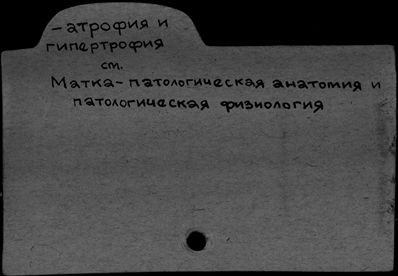 – атрофия и
гипертрофия
см.
Матка – патологическая анатомия и
патологическая физиология